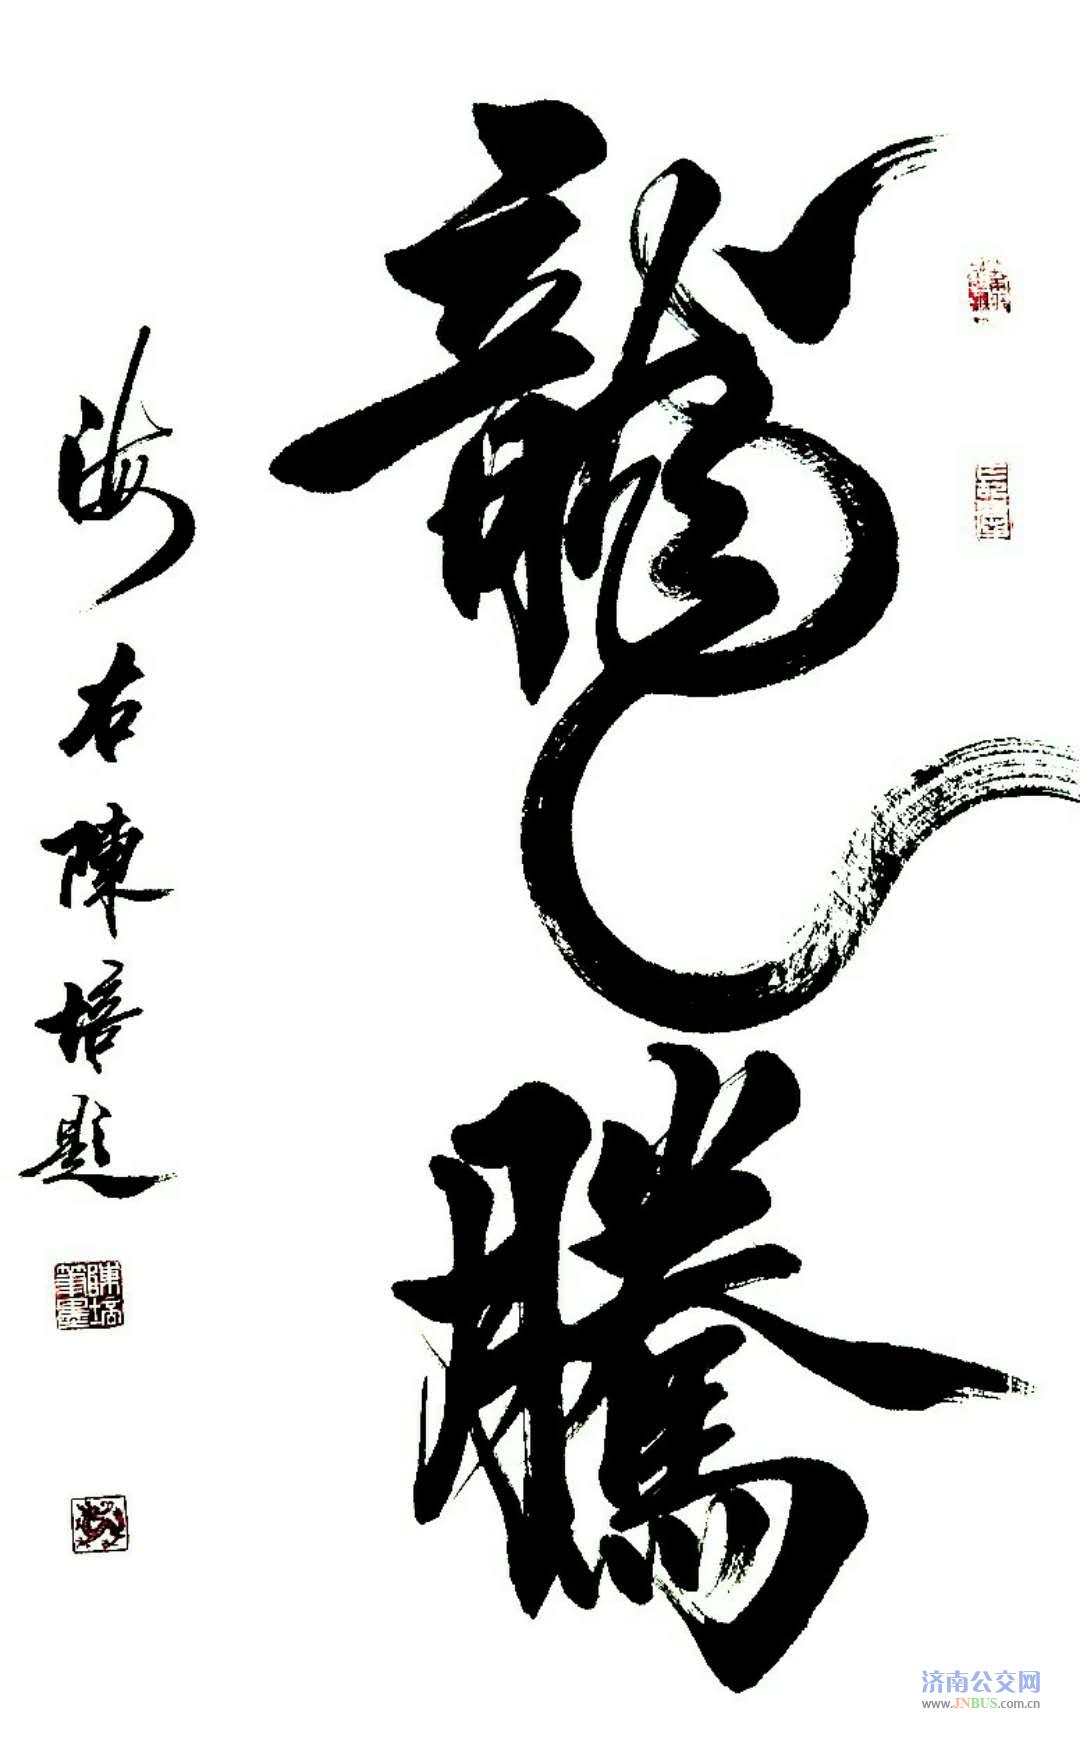 龍騰
海右陳培題
陳培筆墨
济南公交网
www.JNBUS.com.cn